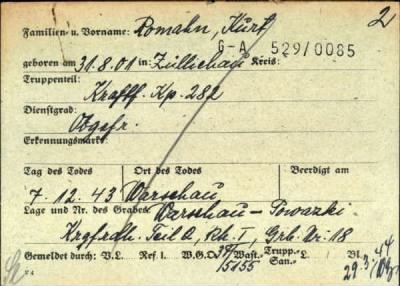 2
Familien- u. Vorname: Romahn, Kurt
G-A 529/0085
geboren am 31.8.01 in: Züllichau Kreis:
Truppenteil:
Kraftf. Kp. 282
Dienstgrad:
Obgefr.
Erkennungsmarke:
Tag des Todes Ort des Todes Beerdigt am
7.12.43 Warschau
Lage und Nr. des Grabes: Warschau - Powazki
Krgfrdh. Teil A, Rh. I, Grb. Nr. 18
Gemeldet durch: V.L. Ref I. W.G.O. Wast.- Trupp.- San.- L. Bl.
5155
29.3.44